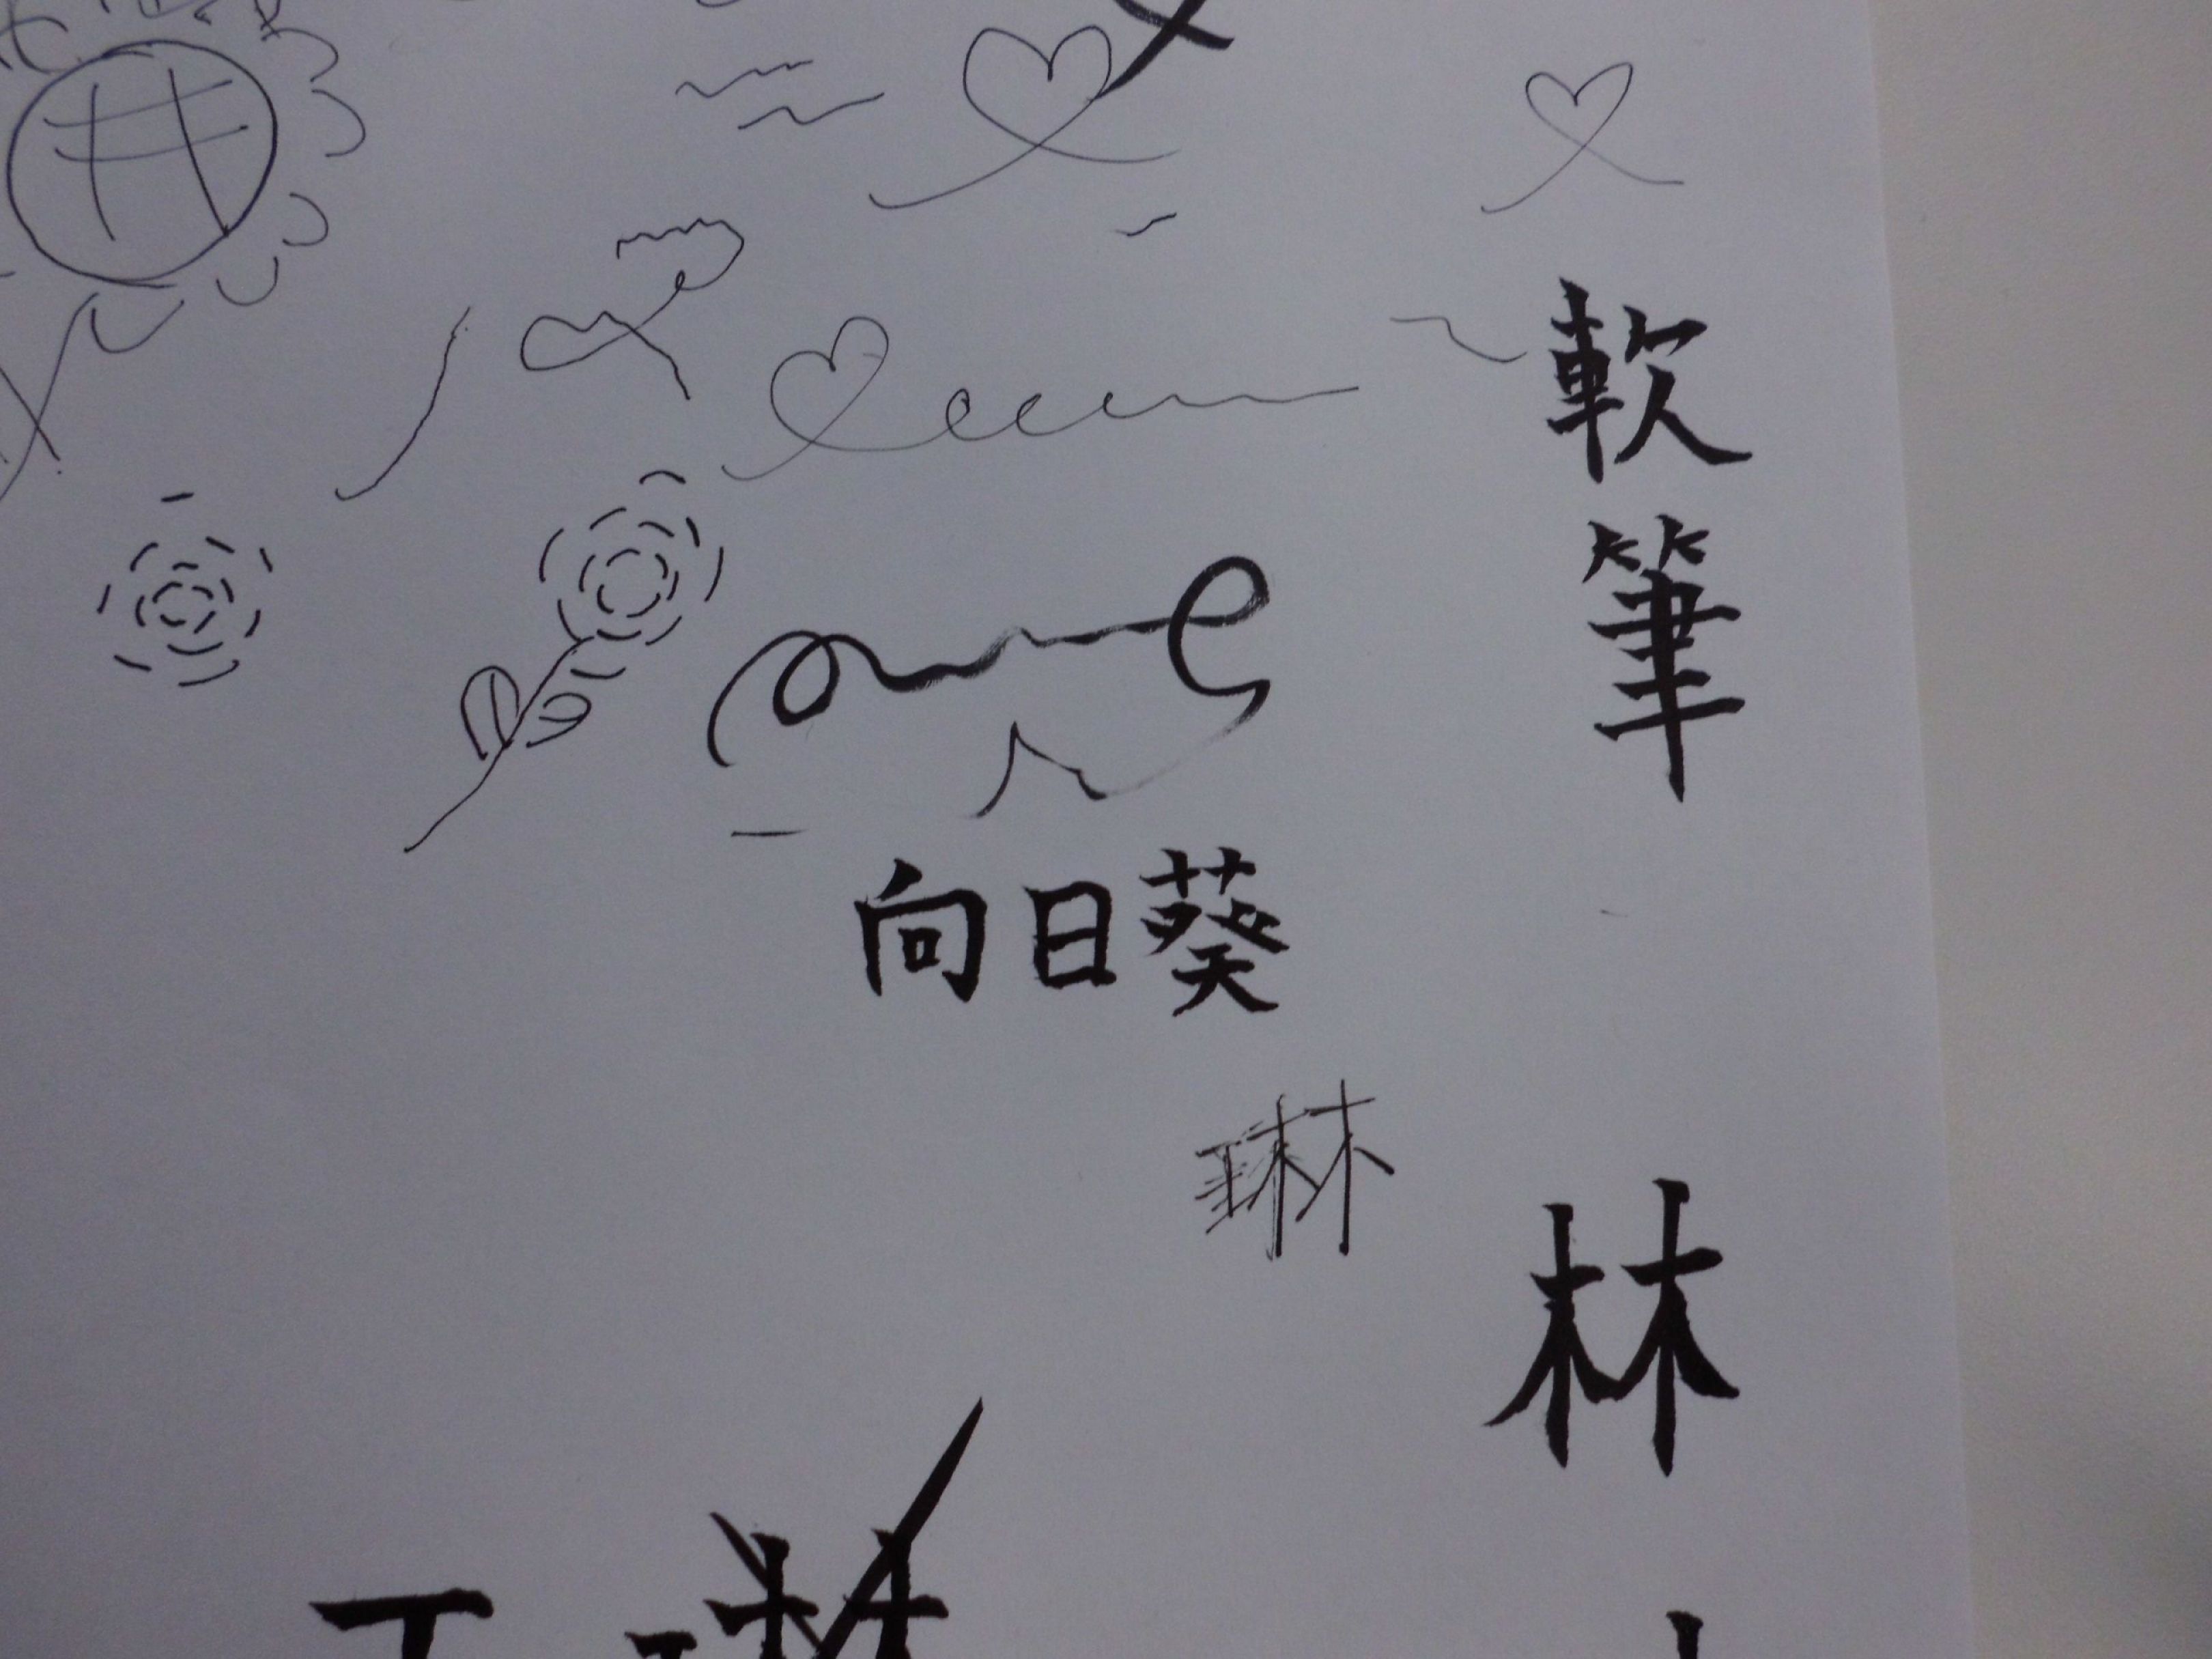 軟筆
向日葵
琳
林